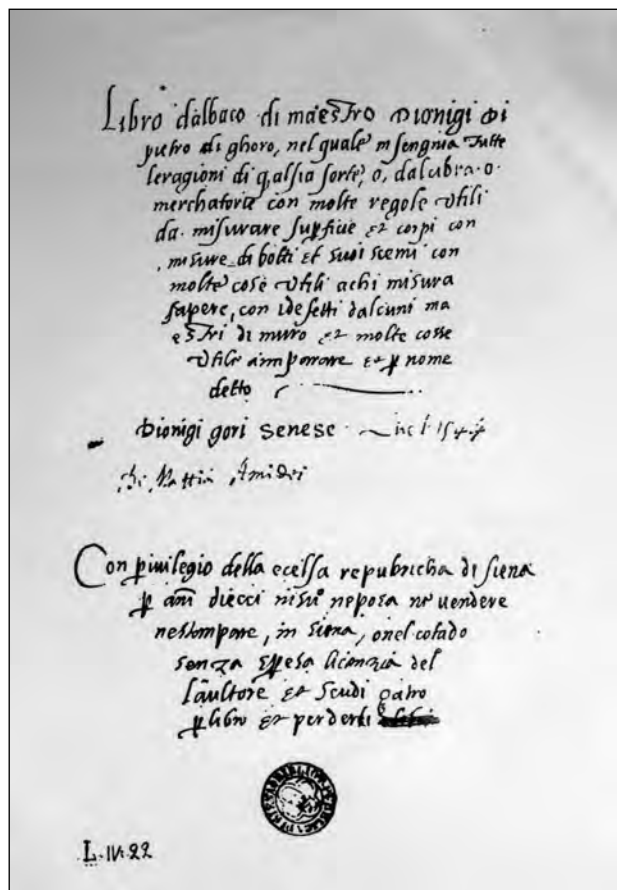 Libro dalbaco di maestro Dionigi di
pietro di ghoro, nel quale insengnia tutte
leragioni di q,alsia sorte, o, dalcibra o
merchatorie con molte regole utili
da misurare supficie et corpi con
misure di botti et suoi scemi con
molte cose utili achi misura
sapere, con idefetti dalcuni ma
estri di muro et molte cosse
utile
detto
Dionigi gori senese
di Mattia Amidei
Con privilegio della ecelsa repubricha di siena
p ani diecci nisu neposa ne vendere
ne stampare, in siena, o nel cotado
senza espresa licenzia del
lautore et scudi qatro
p libro et perderli
L.IV.22